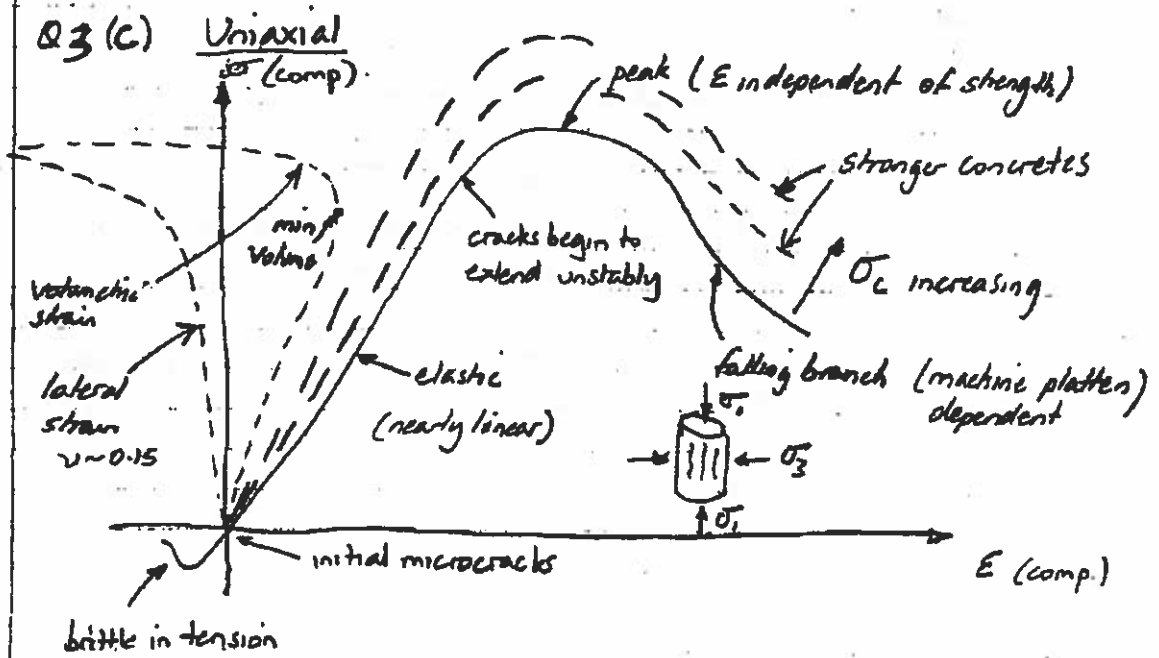 Q3 (C) Uniaxial
σ (comp).
peak (ε independent of strength)
stronger concretes
min
volume
cracks begin to
extend unstably
σc increasing
volumetric
strain
lateral
strain
ν~0.15
elastic
(nearly linear)
falling branch (machine platten)
dependent
σ1
σ3
σ1
initial microcracks
ε (comp.)
brittle in tension